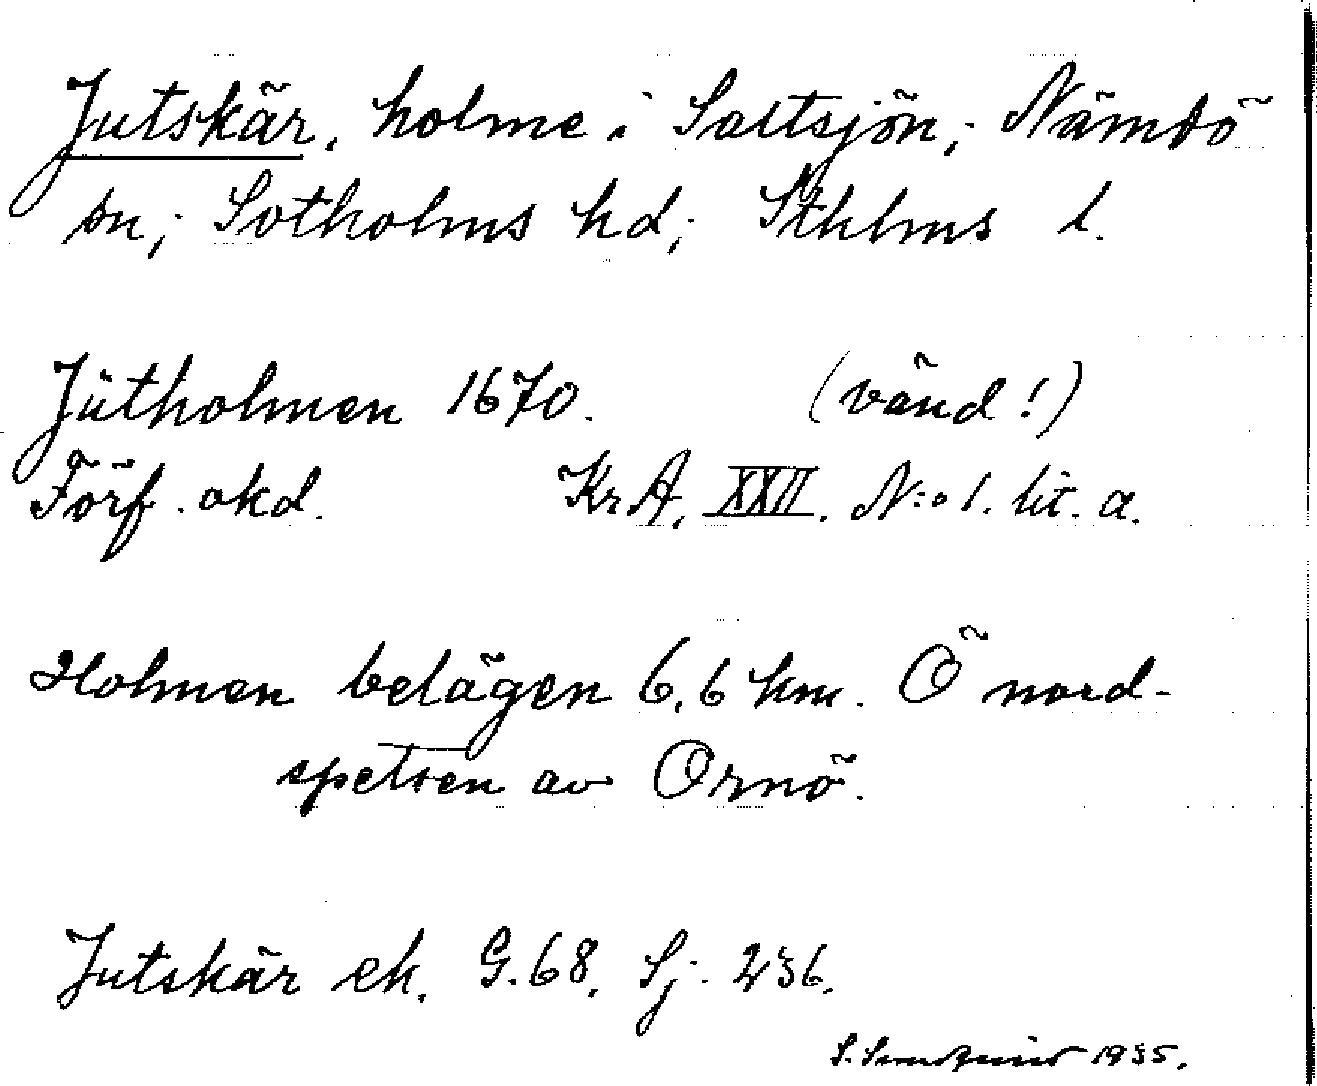 Jutskär, holme i Saltsjön; Nämdö
sn; Sotholms hd; Sthlms l.
Jütholmen 1670. (vänd!)
Förf. okd. KrA, XXII. N:o 1. lit. a.
Holmen belägen 6,6 km. Ö nord-
spetsen av Ornö.
Jutskär ek. G.68. Sj. 236.
S. 1935.